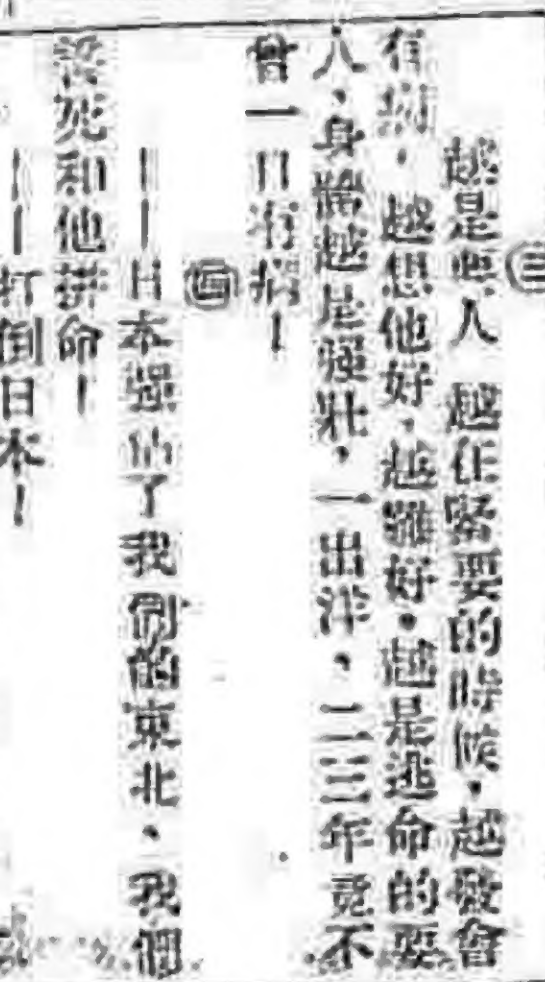 ㊂
越是要人 越在緊要的時候，越發會
有病，越想他好，越難好。越是逃命的要
人，身體越是强壯，一出洋，二三年竟不
曾一日有病！
㊃
——日本强佔了我們的東北，我們
誓死和他拚命！
——打倒日本！